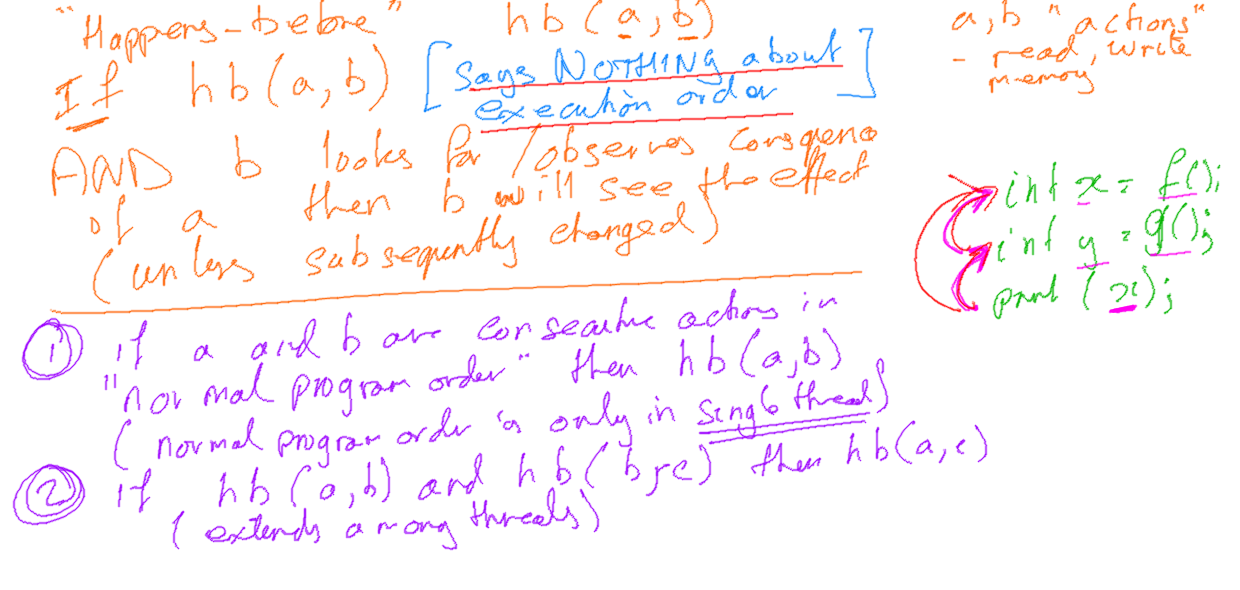 "Happens-before" hb(a,b)
a,b "actions"
- read, write
memory
If hb(a,b) [Says NOTHING about
execution order]
AND b looks for / observes consquence
of a then b will see the effect
(unless subsequently changed)
int x = f();
int y = g();
print (x);
1 if a and b are consecutive actions in
"normal program order" then hb(a,b)
(normal program order is only in single thread)
2 if hb(a,b) and hb(b,c) then hb(a,c)
(extends among threads)